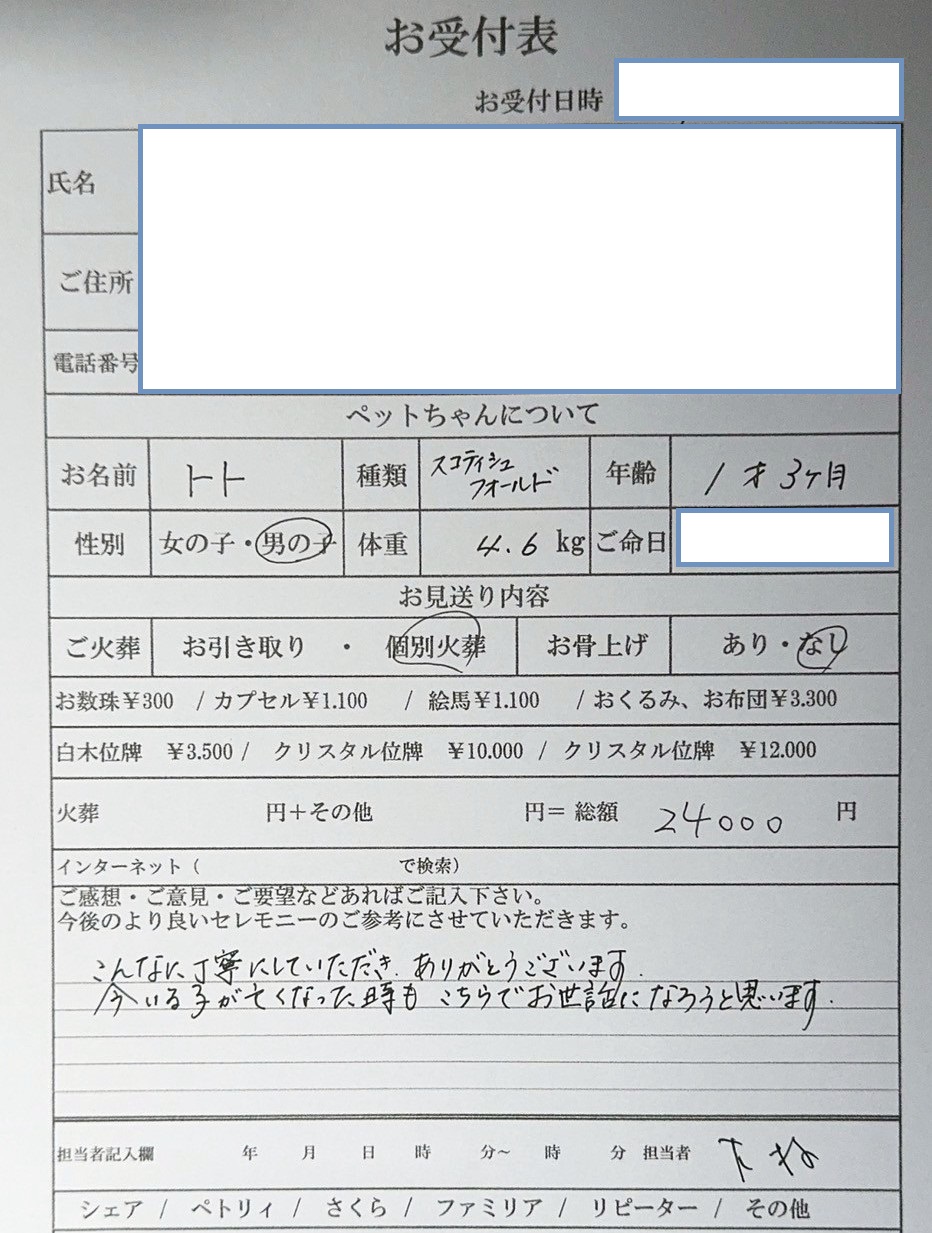 お受付表
お受付日時
氏名
ご住所
電話番号
ペットちゃんについて
お名前 トト 種類 スコティシュ フォールド 年齢 1才3ヶ月
性別 女の子・男の子 体重 4.6 kg ご命日
お見送り内容
ご火葬 お引き取り ・ 個別火葬 お骨上げ あり・なし
お数珠¥300 / カプセル¥1.100 / 絵馬¥1.100 / おくるみ、お布団¥3.300
白木位牌 ¥3.500 / クリスタル位牌 ¥10.000 / クリスタル位牌 ¥12.000
火葬 円+その他 円= 総額 24000 円
インターネット( で検索)
ご感想・ご意見・ご要望などあればご記入下さい。
今後のより良いセレモニーのご参考にさせていただきます。
こんなに丁寧にしていただき、ありがとうございます.
今いる子が亡くなった時も こちらでお世話になろうと思います.
担当者記入欄 年 月 日 時 分~ 時 分 担当者
シェア / ペトリィ / さくら / ファミリア / リピーター / その他